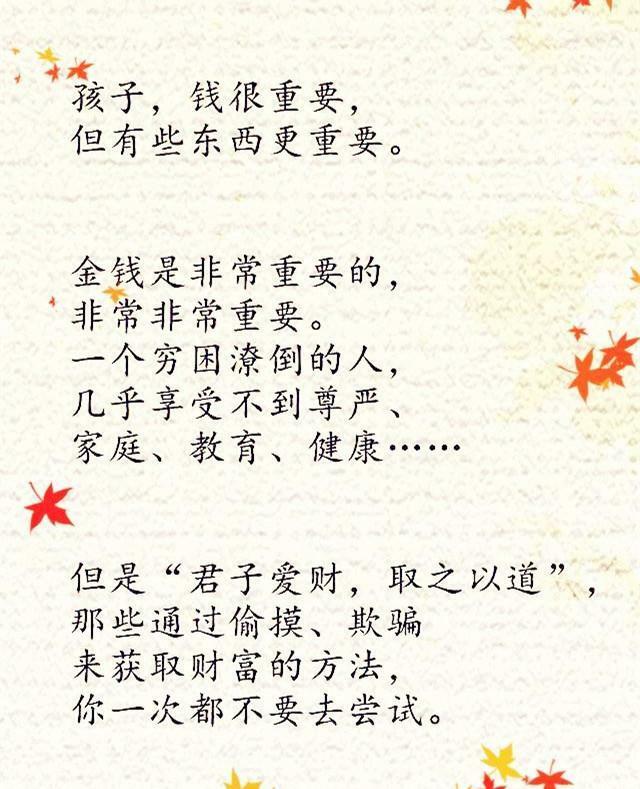 孩子，钱很重要，
但有些东西更重要。
金钱是非常重要的，
非常非常重要。
一个穷困潦倒的人，
几乎享受不到尊严、
家庭、教育、健康……
但是“君子爱财，取之以道”，
那些通过偷摸、欺骗
来获取财富的方法，
你一次都不要去尝试。